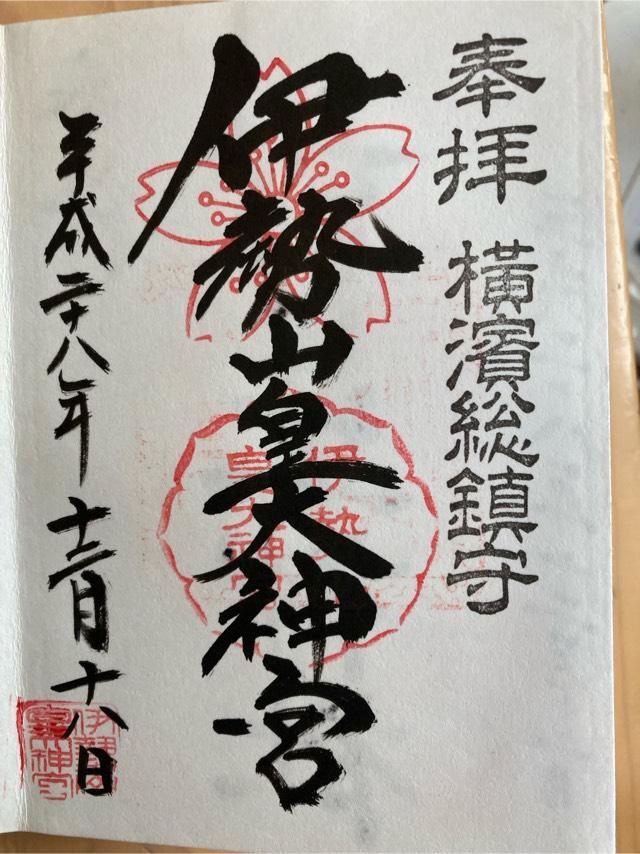 奉拝 横濱総鎮守
伊勢山皇大神宮
伊勢山
皇大神宮
平成二十八年 十二月十八日
伊勢山
皇大神宮